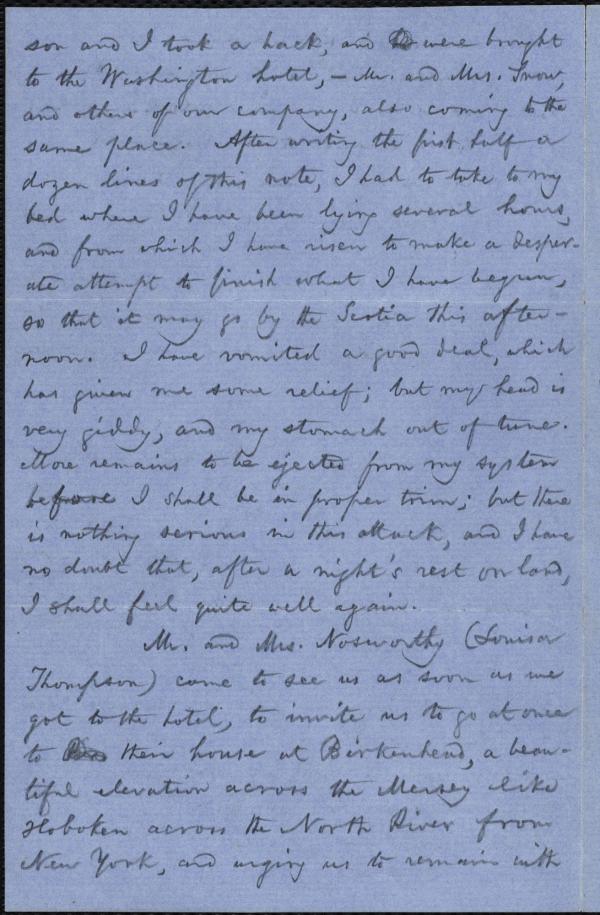 son and I took a hack, and were brought
to the Washington hotel, — Mr. and Mrs. Snow,
and others of our company, also coming to the
same place. After writing the first half a
dozen lines of this note, I had to take to my
bed where I have been lying several hours,
and from which I have risen to make a desper-
ate attempt to finish what I have begun,
so that it may go by the Scotia this after-
noon. I have vomited a good deal, which
has given me some relief; but my head is
very giddy, and my stomach out of tune.
More remains to be ejected from my system
before I shall be in proper trim; but there
is nothing serious in this attack, and I have
no doubt that, after a night's rest on land,
I shall feel quite well again.
Mr. and Mrs. Nosworthy (Louisa
Thompson) came to see us as soon as we
got to the hotel, to invite us to go at once
to their house at Birkenhead, a beau-
tiful elevation across the Mersey like
Hoboken across the North River from
New York, and urging us to remain with